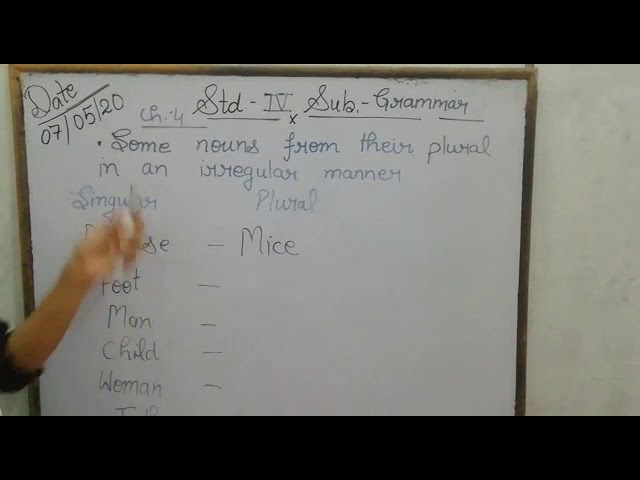 Date
07/05/20
Ch.-4 Std.- IV x Sub.- Grammar
• Some nouns from their plural
in an irregular manner
Singular Plural
– Mice
Foot –
Man –
Child –
Woman –